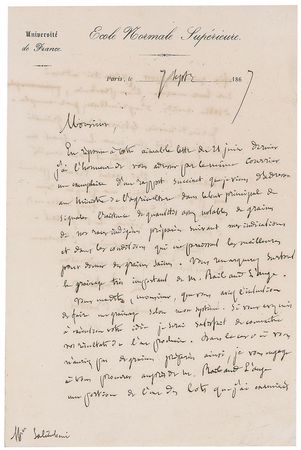 Université
de France.
Ecole Normale Supérieure.
Paris, le 7 Septbre 1867
Monsieur,
En réponse à votre aimable lettre du 21 juin dernier
j'ai l'honneur de vous adresser par le même courrier
un exemplaire d'un rapport succinct que je viens d'adresser
au Ministre de l'agriculture dans le but principal de
signaler l'existence de quantités assez notables de graines
de nos races indigènes préparées suivant mes indications
et dans les conditions qui me paraissent les meilleures
pour donner des graines saines. Vous remarquerez surtout
le grainage très important de M. Raibaud L'ange.
Vous me dites, monsieur, que vous avez l'intention
de faire un grainage selon mon système. Si vous
à votre idée je serai satisfait de connaître
vos résultats de l'an prochain. Dans le cas où vous
n'auriez pas de graines préparées ainsi, je vous engage
à vous procurer auprès de M. Raibaud L'ange
une portion de l'un des lots que j'ai examinés
Mr